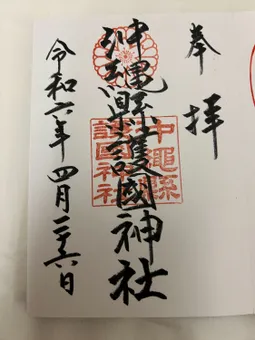 奉拝
沖縄縣護國神社
沖縄縣護國神社
令和六年四月二十六日